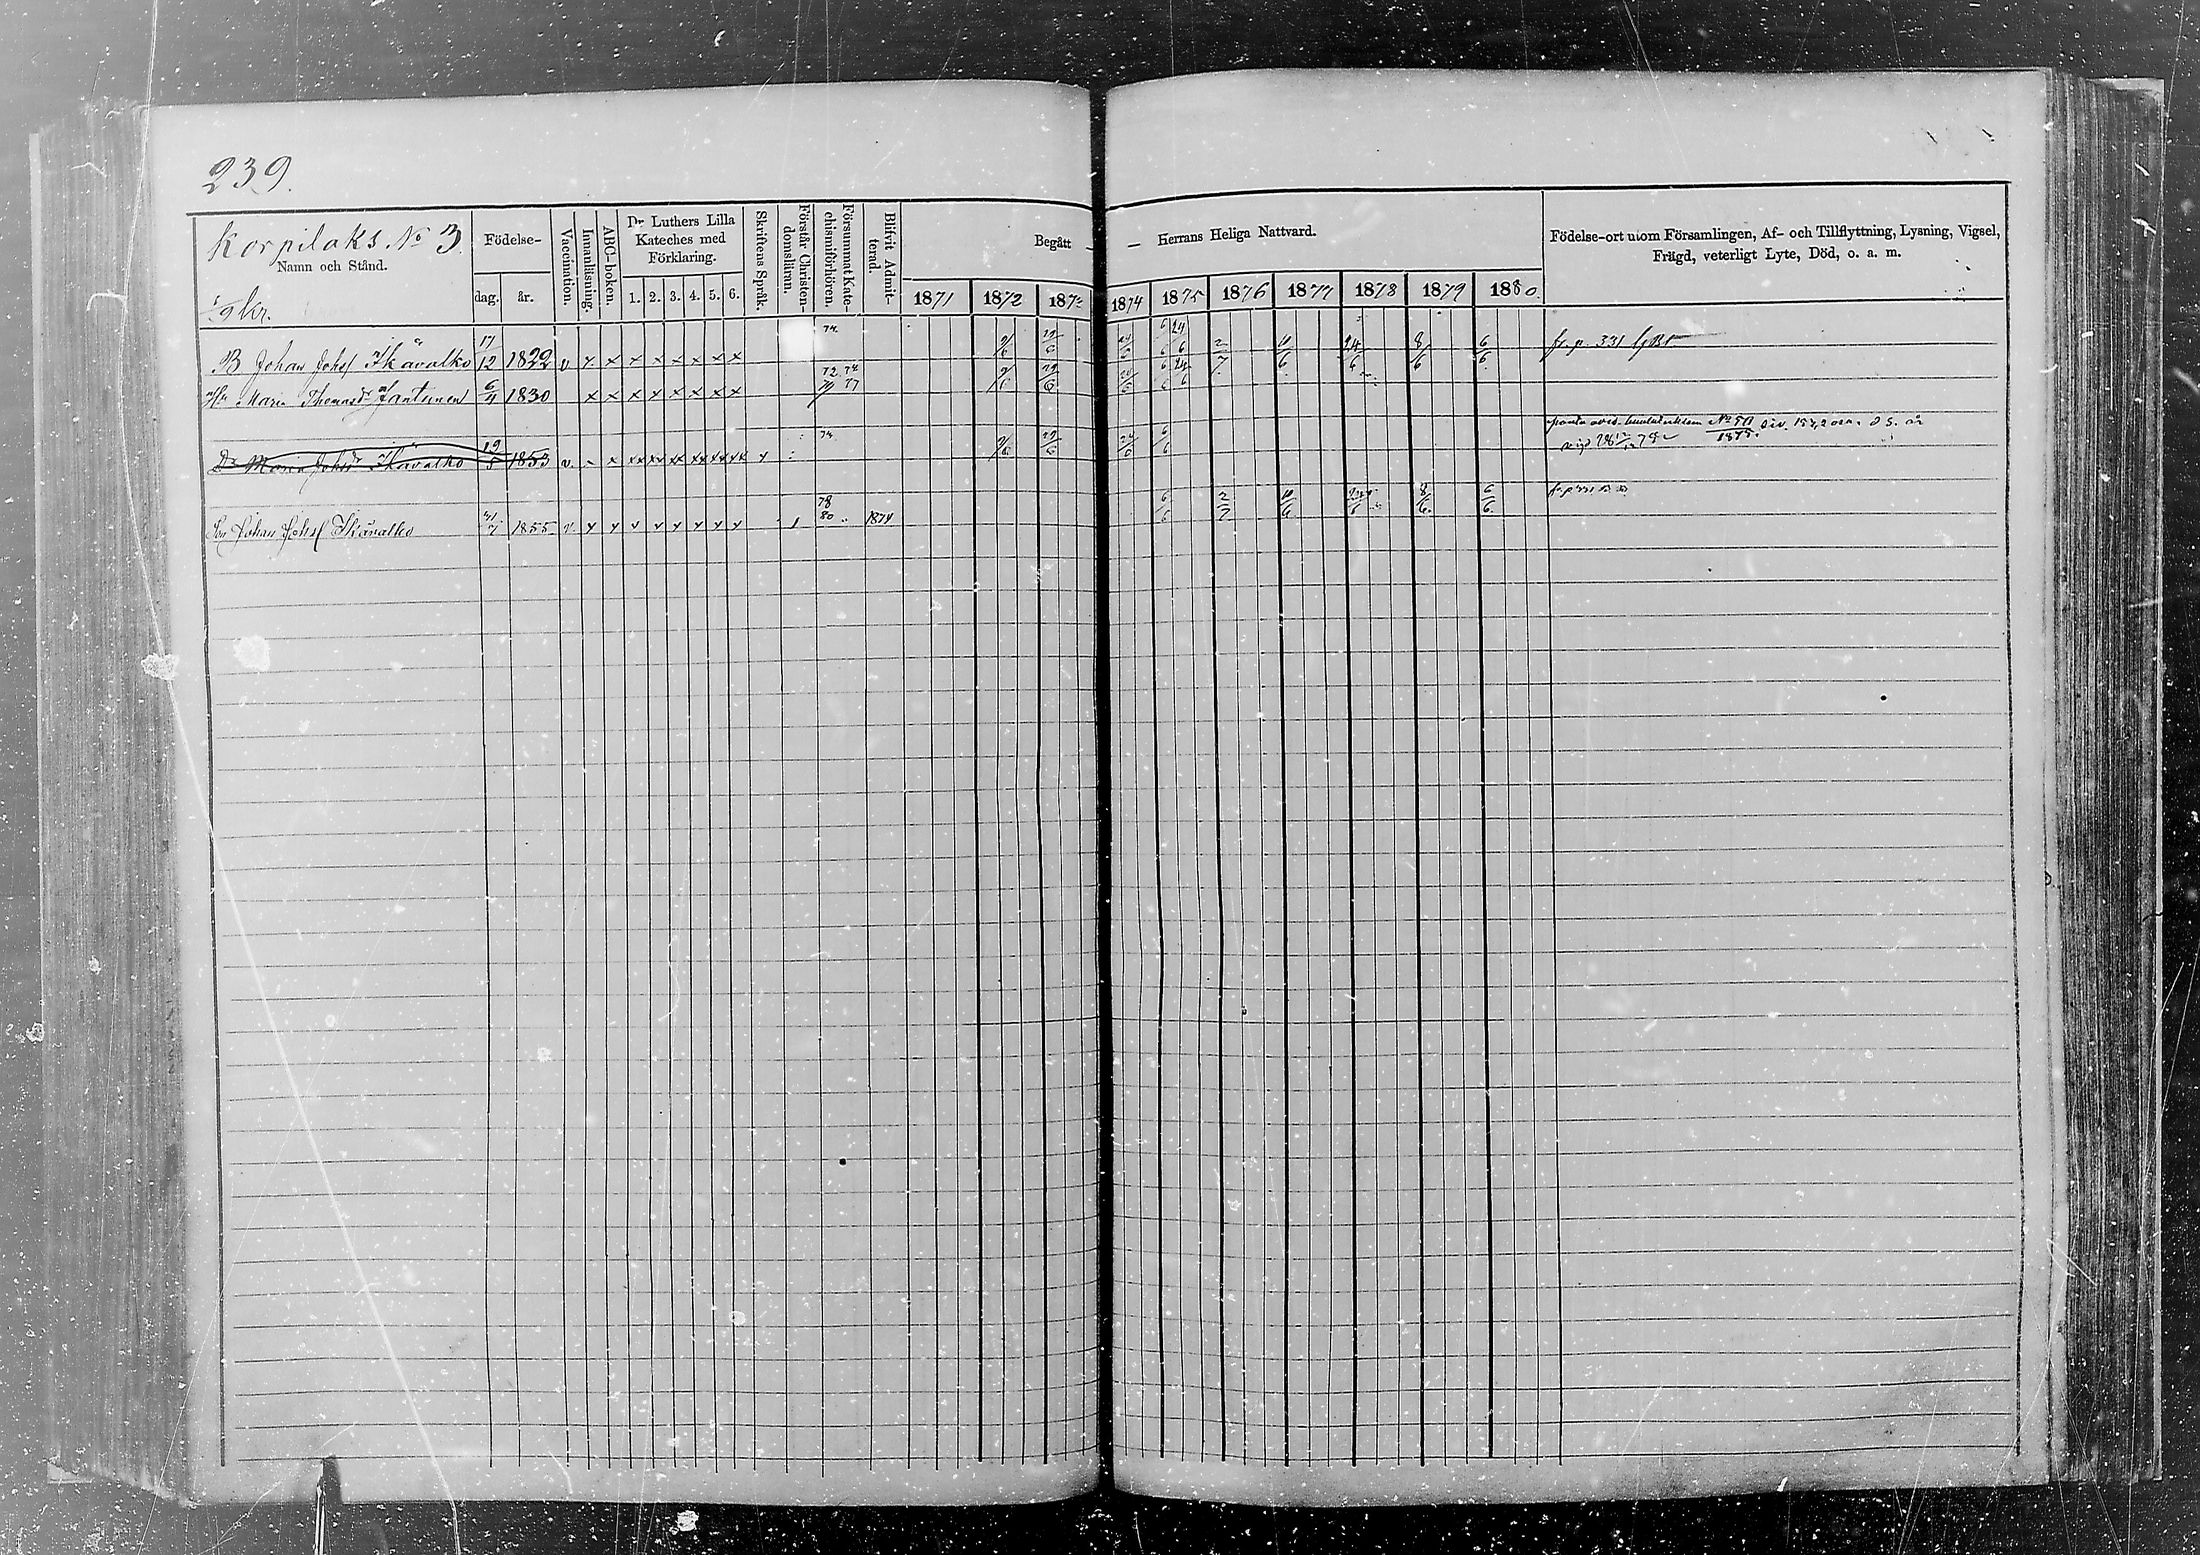 239.
Korpilaks No 3.
Namn och Stånd.
1/9 kr.
Födelse-
dag. år.
Vaccination.
Innanläsning.
ABC-boken.
Dr Luthers Lilla
Kateches med
Förklaring.
1. 2. 3. 4. 5. 6.
Skriftens Språk.
Förstår Christen-
domsläran.
Försummat Kate-
chismiförhören.
Blifvit Admit-
terad.
Begått — — Herrans Heliga Nattvard.
1871 1872 1873 1874 1875 1876 1877 1878 1879 1880.
Födelse-ort utom Församlingen, Af- och Tillflyttning, Lysning, Vigsel,
Frägd, veterligt Lyte, Död, o. a. m.
B Johan Johs Ikävalko 17/12 1829 v x x x x x x x x 74. 9/6 29/6 24/6 6/6 24/6 2/7 10/6 24/6 8/6 6/6 fr. p. 331
Maria Thomasdr Jantunen 6/11 1830 x x x x x x x x 72. 74 77 9/6 29/6 24/6 6/6 24/6
Dr Maria Johsdr Ikävalko 19/5 1853 v. 74. 9/6 29/6 24/6 6/6
No 50 1878.
Son Johan Johs Ikävalko 1855 v. x x x x x x x x 78 80 1874 6/6 2/7 10/6 24/6 8/6 6/6